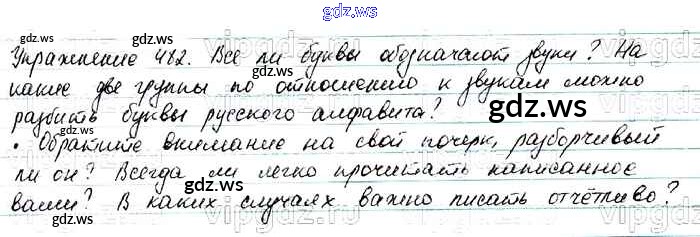 gdz.ws
Упражнение 482. Все ли буквы обозначают звуки? На
какие две группы по отношению к звукам можно
разбить буквы русского алфавита?
• Обратите внимание на свой почерк, разборчивый
ли он? Всегда ли легко прочитать написанное
вами? В каких случаях важно писать отчётливо?
gdz.ws
gdz.ws
gdz.ws
gdz.ws
gdz.ws